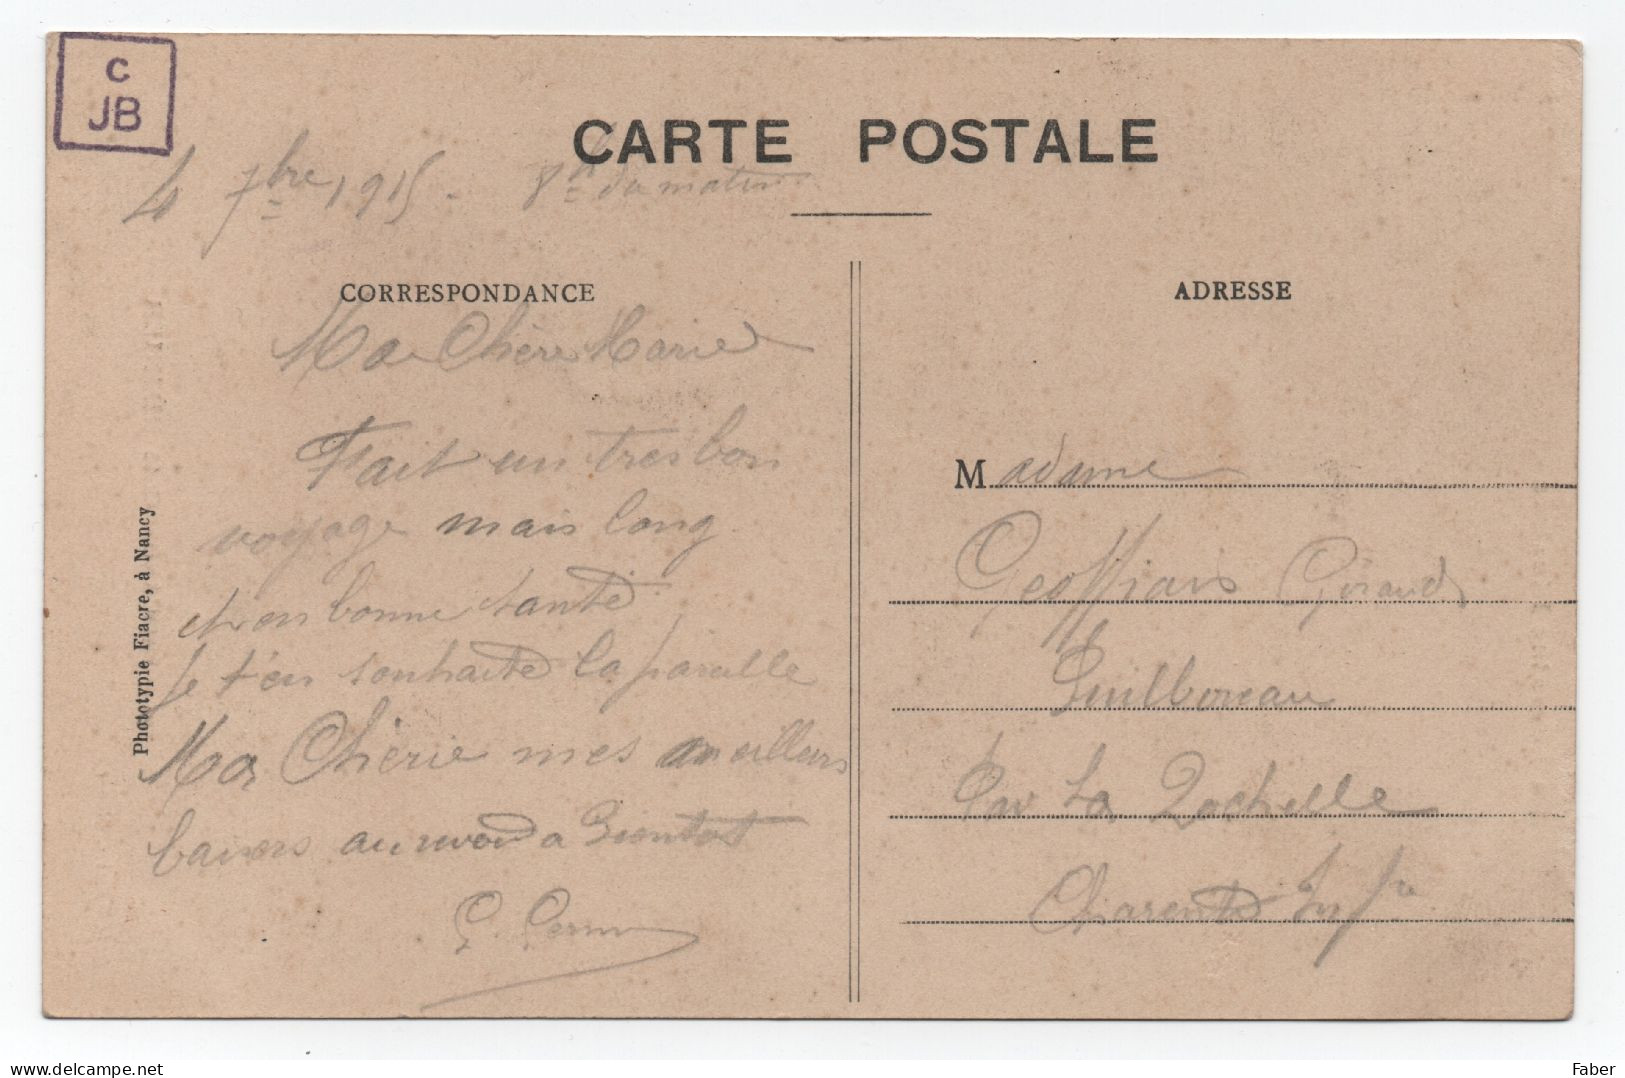 C
JB
CARTE POSTALE
4 7bre 1915. 8h du matin
CORRESPONDANCE
Ma Chère Marie
Fait un tres bon
voyage mais long
et en bonne santé
Je t'en souhaite la pareille
Ma Chérie mes meilleurs
baisers au revoir a bientot
G.
Phototypie Fiacre, à Nancy
ADRESSE
Madame
Geoffrian Giraud
Par La Rochelle
Charente Infre
Faber